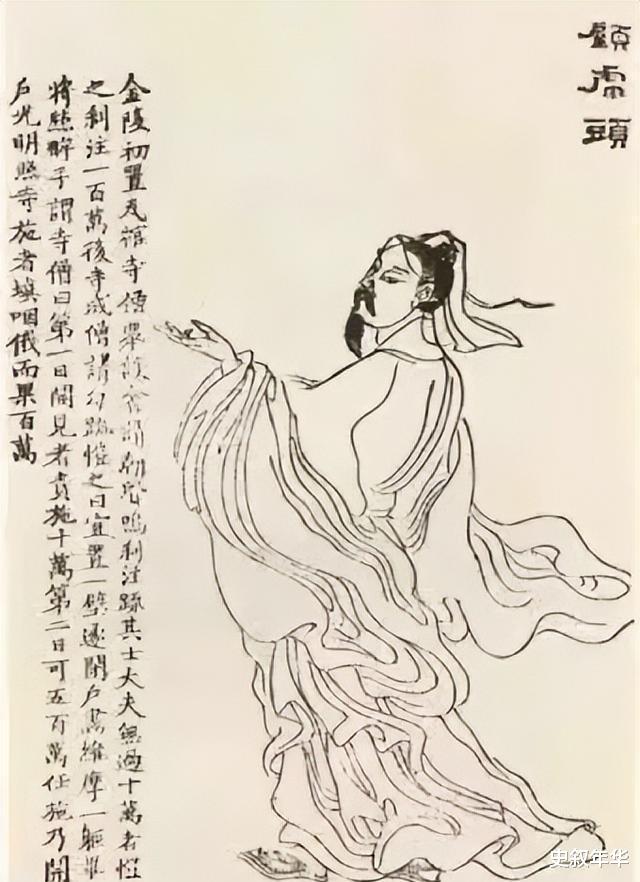 顧虎頭
金陵初置瓦棺寺僧眾設會請朝賢鳴刹注疏其士大夫無過十萬者愷
之刹注一百萬後寺成僧請勾疏愷之曰宜置一壁遂閉戶畫維摩一軀
將點眸子謂寺僧曰第一日開見者責施十萬第二日可五百萬任施乃開
戶光明照寺施者填咽俄而果百萬
史叙年华